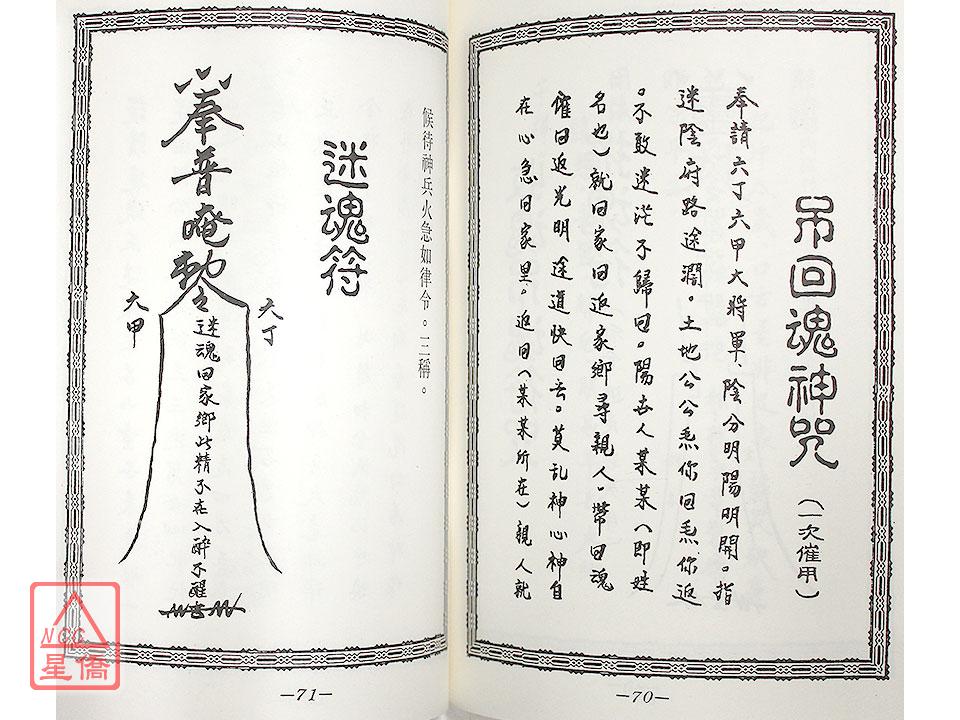 吊回魂神咒(一次催用)
奉請六丁六甲大將軍、陰分明陽明開。指
迷陰府路途濶。土地公公炁你回炁你返
。不敢迷茫不歸回。陽去人某某(即姓
名也)就回家回返家鄉尋親人。幣回魂
催回返光明途道快回去。莫乱神心神自
在心急回家里。返回(某某所在)親人就
—70—
候待神兵火急如律令。三稱。
迷魂符
奉普唵勅
六丁
六甲
迷魂回家鄉此精不在入醉不醒
—71—
NCC
星僑